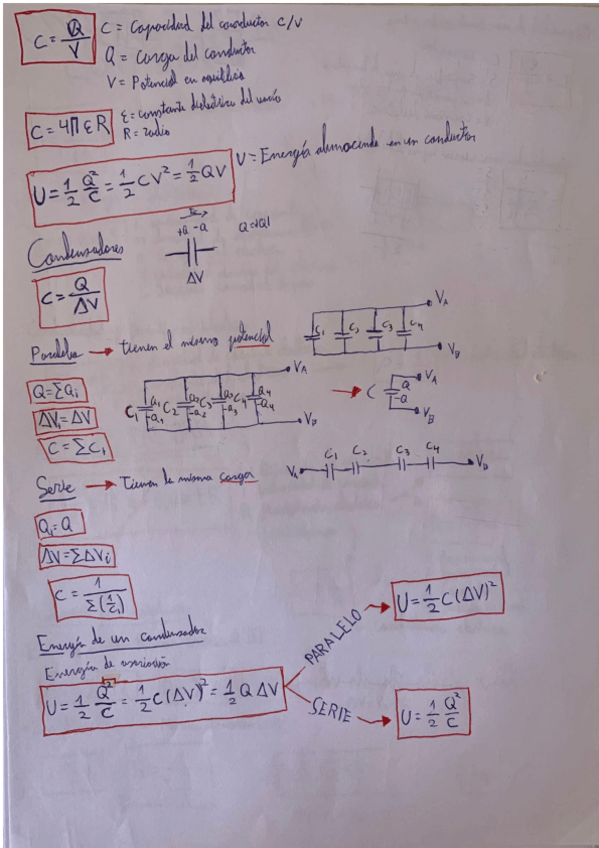 C = Q/V C = Capacidad del conductor C/V
Q = Carga del conductor
V = Potencial en equilibrio
C = 4πεR ε = constante dieléctrica del vacío
R = radio
U = 1/2 Q²/C = 1/2 CV² = 1/2 QV U = Energía almacenada en un conductor
Condensadores
+Q -Q Q=|Q|
ΔV
C = Q/ΔV
Paralelo → tienen el mismo potencial
C₁ C₂ C₃ C₄ V_A V_B
Q = ΣQᵢ
ΔVᵢ = ΔV
C = ΣCᵢ
C₁ Q₁ -Q₁ C₂ Q₂ -Q₂ C₃ Q₃ -Q₃ C₄ Q₄ -Q₄ V_A V_B
→ C Q -Q V_A V_B
Serie → Tienen la misma carga
V_A C₁ C₂ C₃ C₄ V_B
Qᵢ = Q
ΔV = ΣΔVᵢ
C = 1/Σ(1/Cᵢ)
Energía de un condensador
Energía de asociación
U = 1/2 Q²/C = 1/2 C(ΔV)² = 1/2 QΔV
PARALELO → U = 1/2 C(ΔV)²
SERIE → U = 1/2 Q²/C